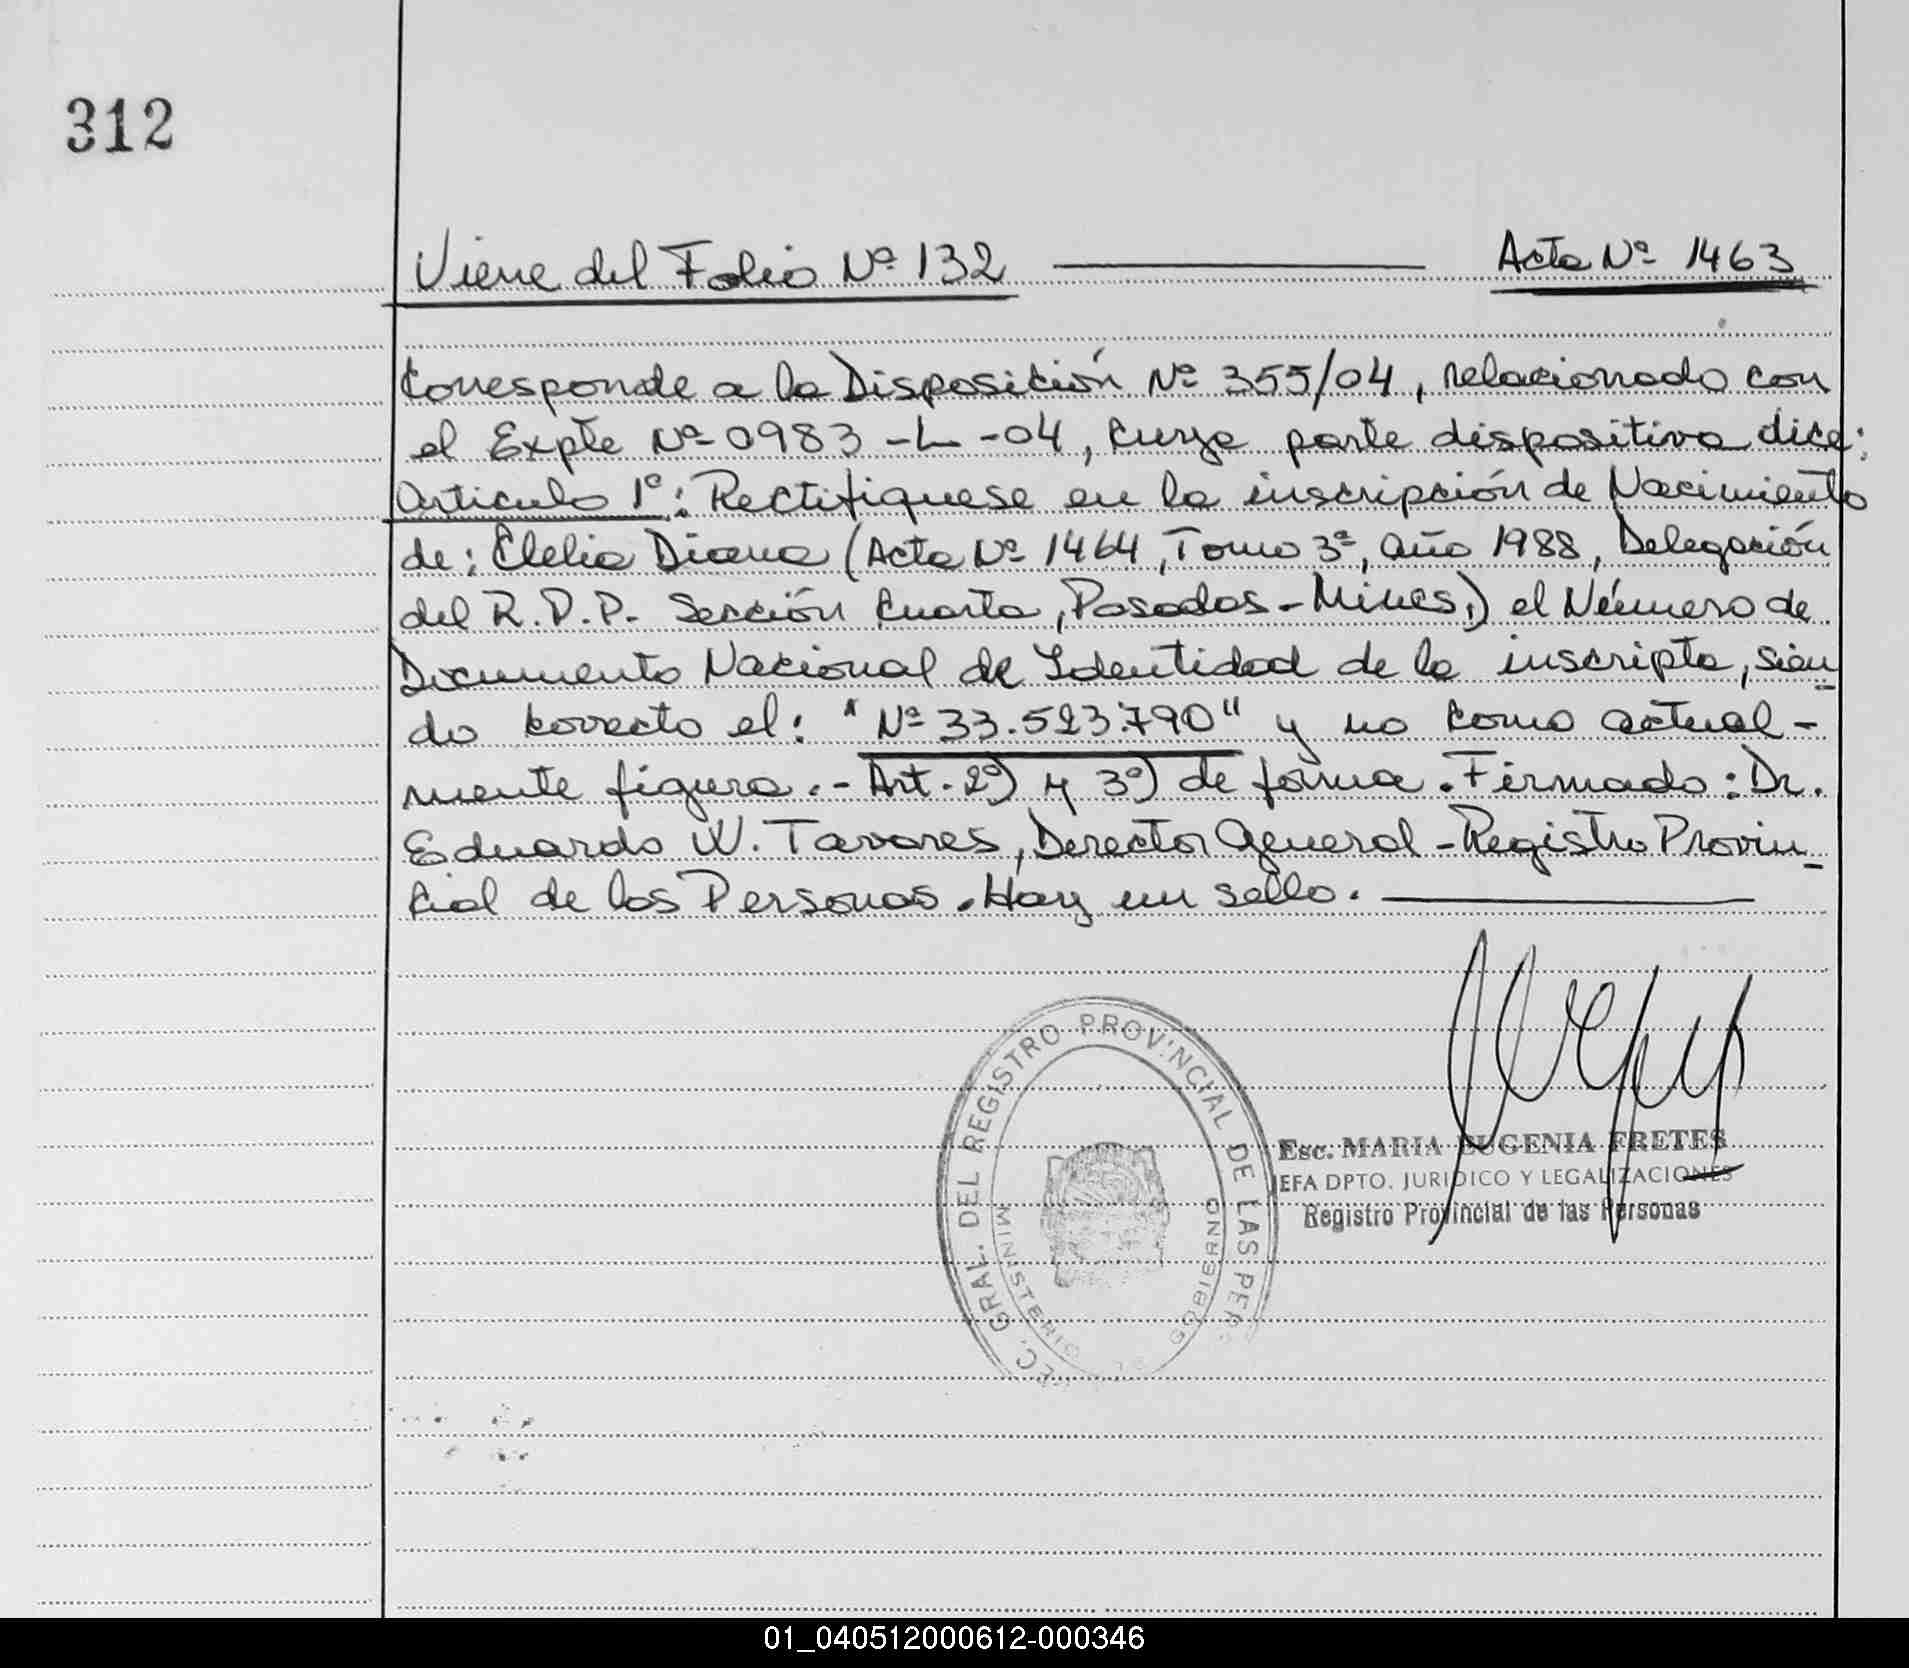 312
Viene del Folio Nº 132 Acta Nº 1463
Corresponde a la Disposición Nº 355/04, relacionado con
el Expte Nº 0983-L-04, cuya parte dispositiva dice:
Articulo 1º: Rectifiquese en la inscripción de Nacimiento
de: Clelia Diana (Acta Nº 1464, Tomo 3º, año 1988, Delegación
del R.P.P. Sección Cuarta, Posadas-Mines,) el Número de
Documento Nacional de Identidad de la inscripta, sien-
do correcto el: "Nº 33.523.790" y no como actual-
mente figura.- Art. 2º) y 3º) de forma. Firmado: Dr.
Eduardo W. Tavares, Director General - Registro Provin-
cial de las Personas. Hay un sello.
GRAL. DEL REGISTRO PROVINCIAL DE LAS PER
MINISTERIO GOBIERNO
Esc. MARIA EUGENIA FRETES
JEFA DPTO. JURIDICO Y LEGALIZACIONES
Registro Provincial de las Personas
01_040512000612-000346